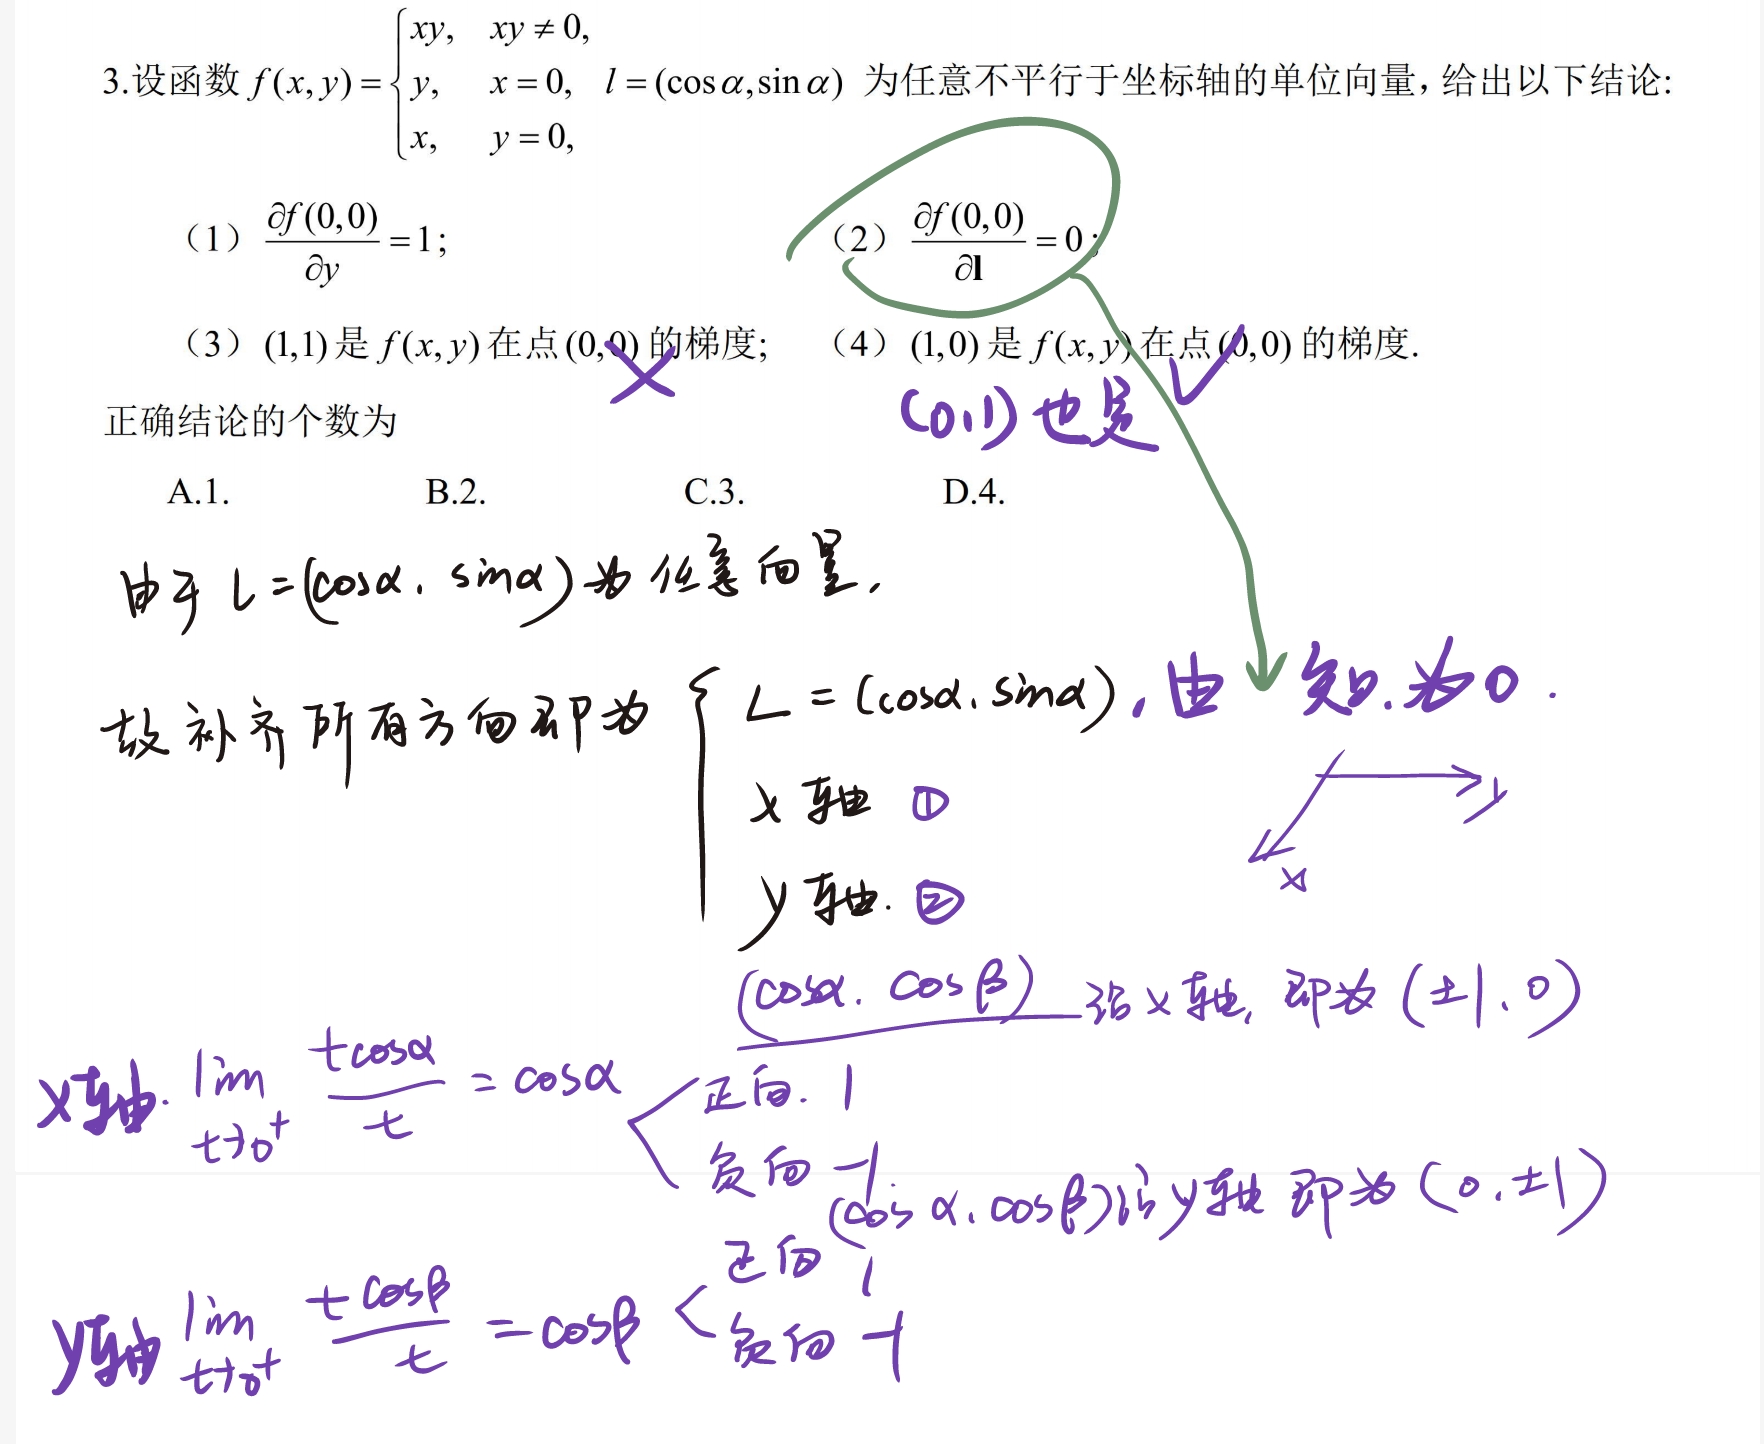 3.设函数 f(x,y)={xy, xy≠0, y, x=0, x, y=0, l=(cosα,sinα) 为任意不平行于坐标轴的单位向量,给出以下结论:
(1) ∂f(0,0)/∂y=1; (2) ∂f(0,0)/∂l=0;
(3) (1,1)是 f(x,y)在点(0,0)的梯度; (4) (1,0)是 f(x,y)在点(0,0)的梯度.
× ✓
(0,1)也是
正确结论的个数为
A.1. B.2. C.3. D.4.
由于 L=(cosα, sinα)为任意向量,
故补齐所有方向即为 { L=(cosα, sinα), 由 知.为0.
x轴 ①
y轴. ②
y
x
(cosα, cosβ) 沿x轴, 即为(±1, 0)
x轴. lim t→0⁺ tcosα/t = cosα
正向. 1
负向 -1
(cosα, cosβ)沿y轴 即为(0, ±1)
y轴 lim t→0⁺ tcosβ/t = cosβ
正向 1
负向 -1